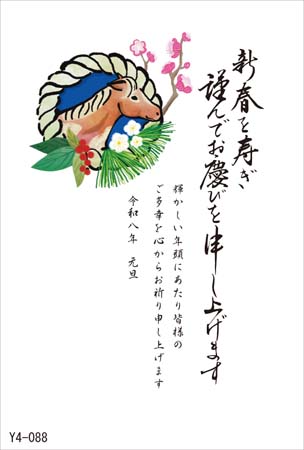 新春を寿ぎ
謹んでお慶びを申し上げます
輝かしい年頭にあたり皆様の
ご多幸を心からお祈り申し上げます
令和八年 元旦
Y4-088